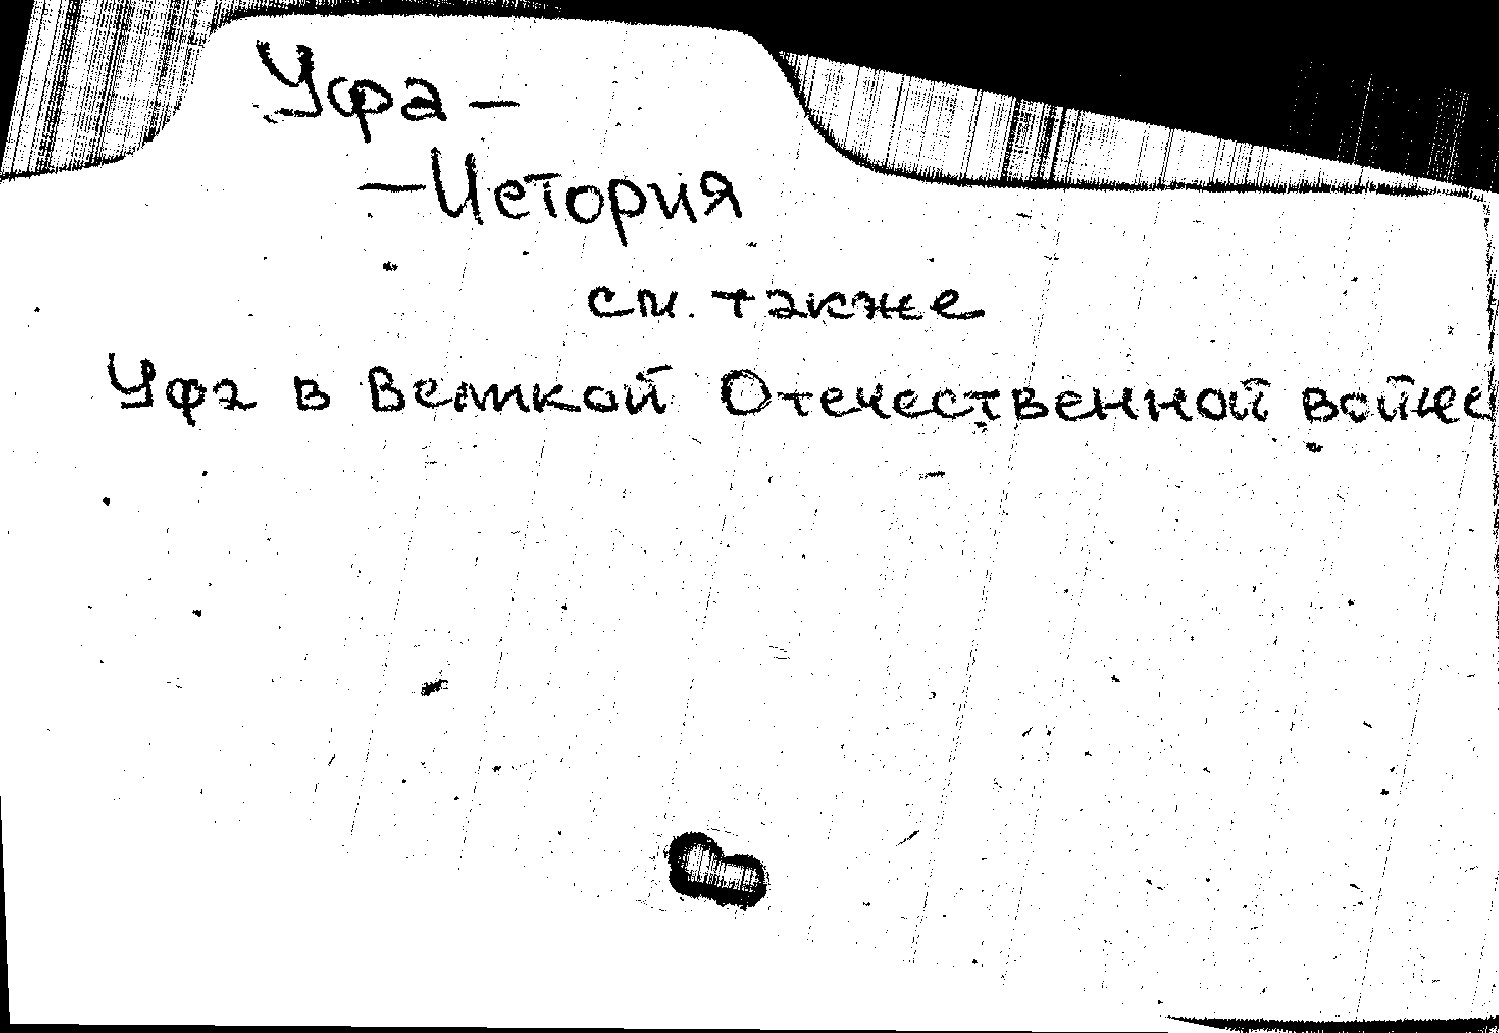 Уфа —
— История
см. также
Уфа в Великой Отечественной войне